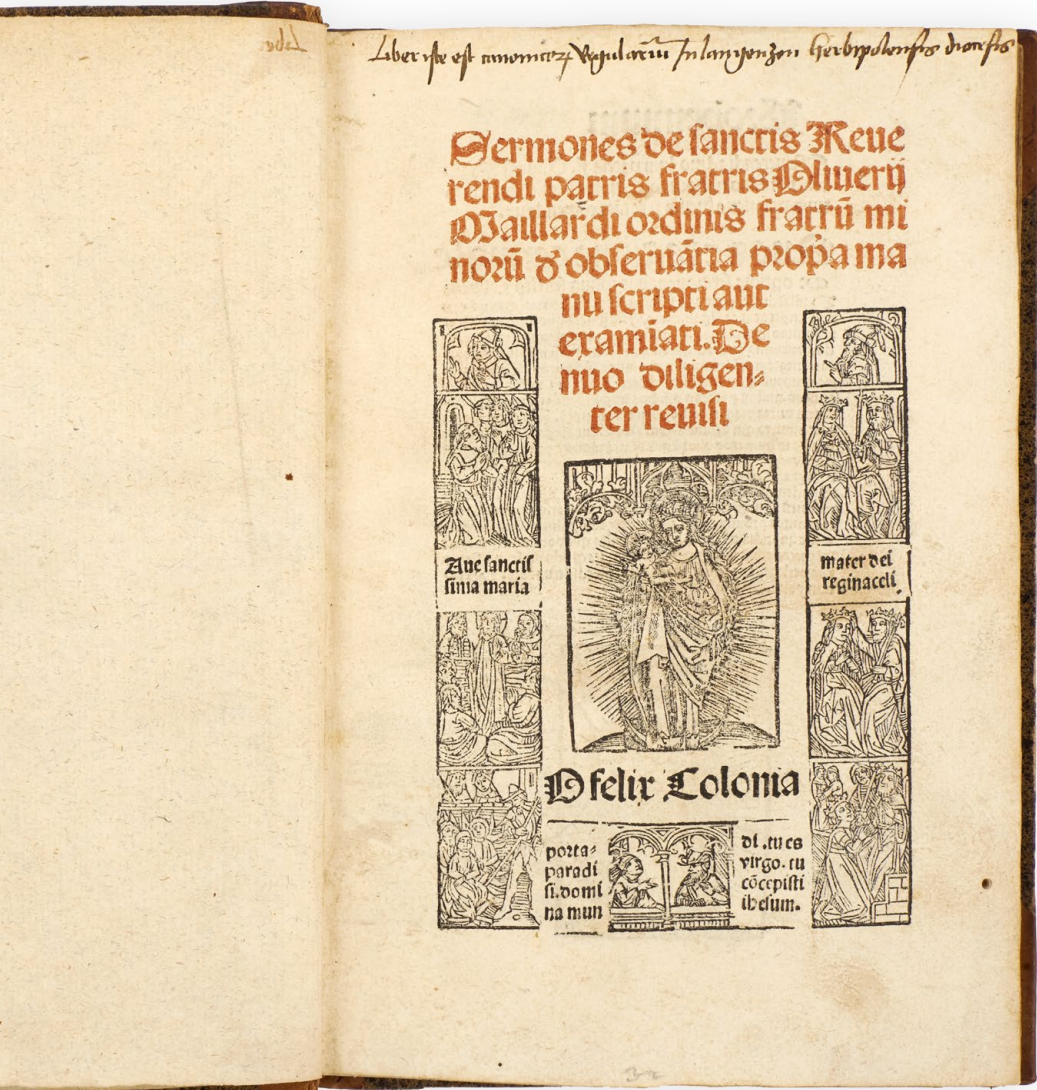 Liber iste est canonicoꝝ Regulariū In langenzen herbipolensis diocesis
Sermones de sanctis Reue
rendi patris fratris Oliuerij
Maillardi ordinis fratrū mi
norū de obseruātia propͥa ma
nu scripti aut
examīati. De
nuo diligen⸗
ter reuisi
Aue sanctis
sima maria
mater dei
regina celi.
O felix Colonia
porta⸗
paradi
si. domi
na mun
di. tu es
virgo. tu
cōcepisti
ihesum.